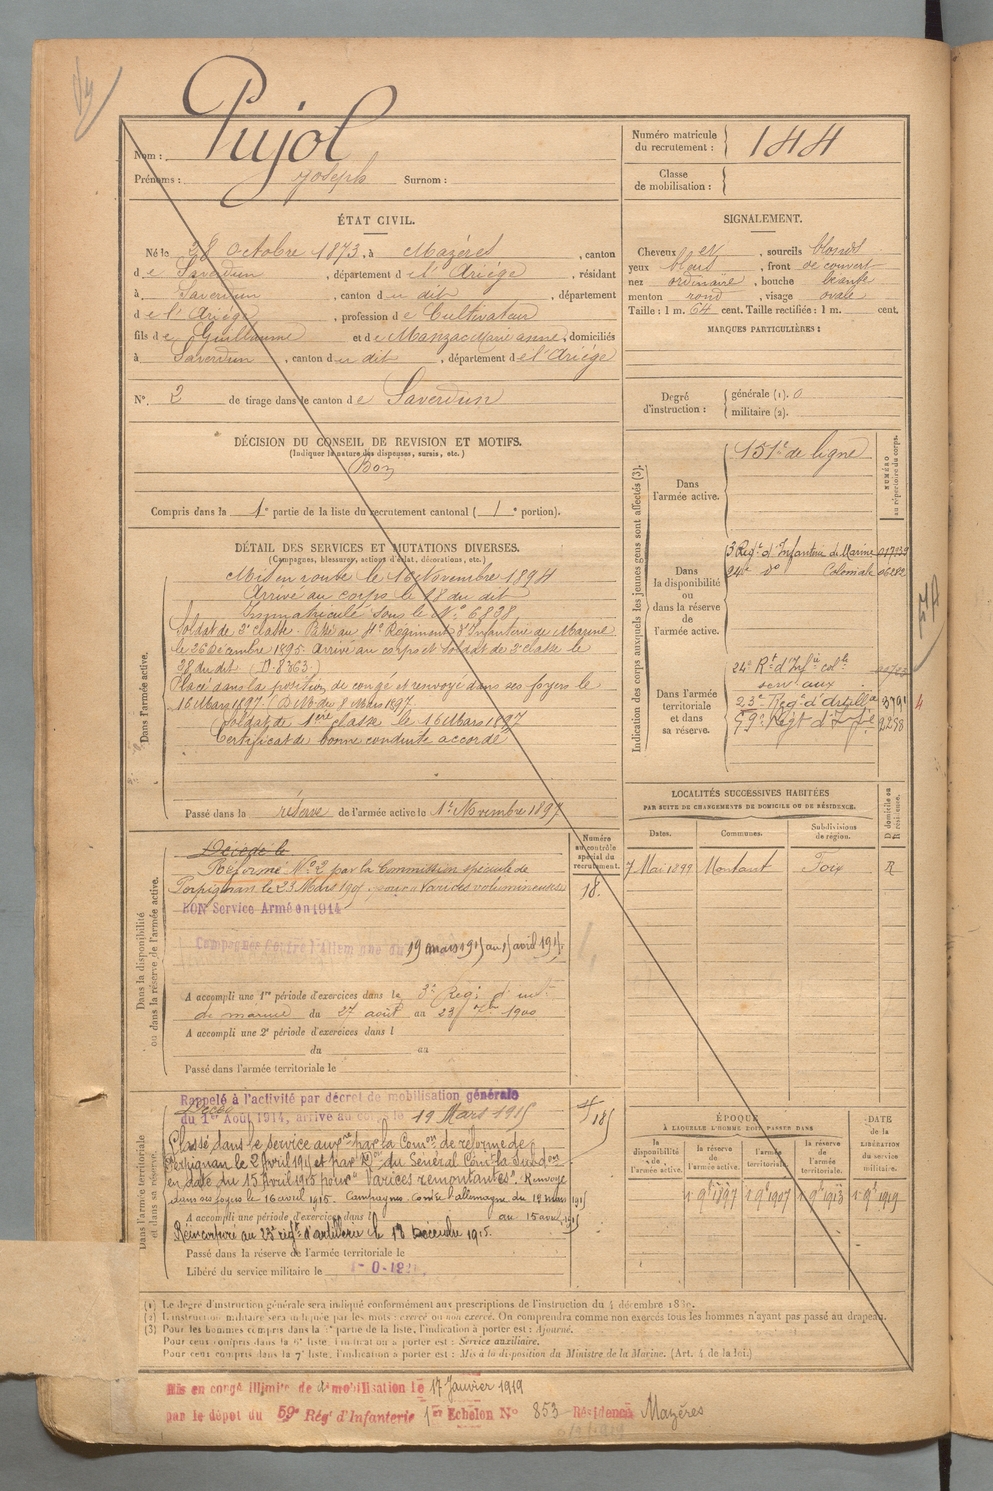 Pujol
Nom :
Prénoms : Joseph Surnom :
Numéro matricule du recrutement : 144
Classe de mobilisation :
ÉTAT CIVIL.
Né le 28 Octobre 1873, à Mazères, canton
de Saverdun, département de l'Ariège, résidant
à Saverdun, canton du dit, département
de l'Ariège, profession de Cultivateur
fils de Guillaume et de Manzac Marie anne, domiciliés
à Saverdun, canton du dit, département de l'Ariège
N° 2 de tirage dans le canton de Saverdun
SIGNALEMENT.
Cheveux et, sourcils blonds
yeux bleus, front découvert
nez ordinaire, bouche
menton rond, visage ovale
Taille : 1 m. 64 cent. Taille rectifiée : 1 m. cent.
MARQUES PARTICULIÈRES :
Degré d'instruction : générale (1). 0
militaire (2).
DÉCISION DU CONSEIL DE REVISION ET MOTIFS.
(Indiquer la nature des dispenses, sursis, etc.)
Bon
Compris dans la 1e partie de la liste du recrutement cantonal (1e portion).
DÉTAIL DES SERVICES ET MUTATIONS DIVERSES.
(Campagnes, blessures, actions d'éclat, décorations, etc.)
Dans l'armée active.
Mis en route le 16 Novembre 1894
Arrivé au corps le 18 du dit
Immatriculé sous le N° 6838
Soldat de 2e classe. Passé au 4e Régiment d'Infanterie de Marine
le 26 Décembre 1895. Arrivé au corps et soldat de 2e classe le
28 du dit (D. 8363.)
Placé dans la position de congé et renvoyé dans ses foyers le
16 Mars 1897. (D. M. du 8 Mars 1897.
Soldat de 1ère classe le 16 Mars 1897
Certificat de bonne conduite accordé
Passé dans la réserve de l'armée active le 1er Novembre 1897
Indication des corps auxquels les jeunes gens sont affectés (3).
NUMÉRO au répertoire du corps.
Dans l'armée active.
151e de ligne
Dans la disponibilité ou dans la réserve de l'armée active.
3 Regt d'Infanterie de Marine 017939
24e do Coloniale 06282
Dans l'armée territoriale et dans sa réserve.
24e Rt d'Infie colle
serv aux
23e Regt d'Artillie 3791
59e Régt d'Infie 2258
LOCALITÉS SUCCESSIVES HABITÉES
PAR SUITE DE CHANGEMENTS DE DOMICILE OU DE RÉSIDENCE.
Dates. Communes. Subdivisions de région. D domicile ou R résidence.
7 Mai 1899 Montaut Foix R
Numéro au contrôle spécial du recrutement.
18.
Dans la disponibilité ou dans la réserve de l'armée active.
Décédé le
Réformé N° 2 par la Commission spéciale de
Perpignan le 23 Mars 1901 pour varices volumineuses
BON Service Armé en 1914
Campagne contre l'Allemagne du 19 mars 1915 au 15 avril 1915.
A accompli une 1re période d'exercices dans le 3e Regt d'inf
de marine du 27 août au 23 7bre 1900
A accompli une 2e période d'exercices dans l
du au
Passé dans l'armée territoriale le
Dans l'armée territoriale et dans sa réserve.
Rappelé à l'activité par décret de mobilisation générale
Décédé
du 1er Août 1914, arrivé au corps le 19 Mars 1915
Classé dans le service auxre par la Comon de réforme de
Perpignan le 2 Avril 1915 et par Don du Général Comt la Subdon
en date du 15 Avril 1915 pour "Varices remontantes". Renvoyé
dans ses foyers le 16 avril 1915. Campagne contre l'allemagne du 19 mars 1915
A accompli une période d'exercices dans l au 15 avril 1915
Réincorporé au 23e régt d'artillerie le 18 Décembre 1915.
Passé dans la réserve de l'armée territoriale le
Libéré du service militaire le
ÉPOQUE
À LAQUELLE L'HOMME DOIT PASSER DANS
la disponibilité de l'armée active.
la réserve de l'armée active.
l'armée territoriale.
la réserve de l'armée territoriale.
DATE de la LIBÉRATION du service militaire.
1er 9bre 1897 1er 9bre 1907 1er 9bre 1913 1er 9bre 1919
(1) Le degré d'instruction générale sera indiqué conformément aux prescriptions de l'instruction du 4 décembre 1889.
(2) L'instruction militaire sera indiquée par les mots : exercé ou non exercé. On comprendra comme non exercés tous les hommes n'ayant pas passé au drapeau.
(3) Pour les hommes compris dans la 5e partie de la liste, l'indication à porter est : Ajourné.
Pour ceux compris dans la 6e liste, l'indication à porter est : Service auxiliaire.
Pour ceux compris dans la 7e liste, l'indication à porter est : Mis à la disposition du Ministre de la Marine. (Art. 4 de la loi.)
Mis en congé illimité de démobilisation le 17 Janvier 1919
par le dépot du 59e Rég d'Infanterie 1er Echelon N° 853 Résidence Mazères